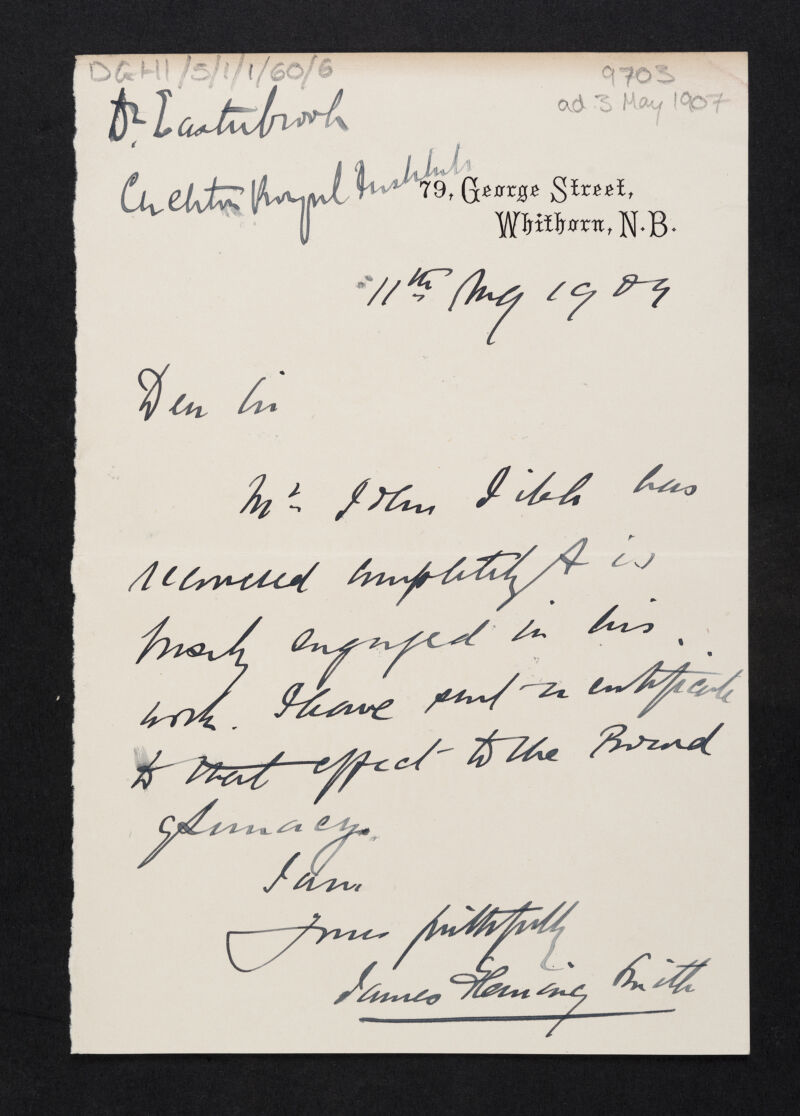 DGH1/5/1/1/60/6
9703
ad. 3 May 1907
Dr. Easterbrook
Crichton Royal Institute
79, George Street,
Whithorn, N.B.
11th 1909
Dear Sir
Mr. John has
recovered completely & is
busily engaged in his
work. I have sent a certificate
to that effect to the Board
of Lunacy.
I am
Yours faithfully
James Fleming Smith